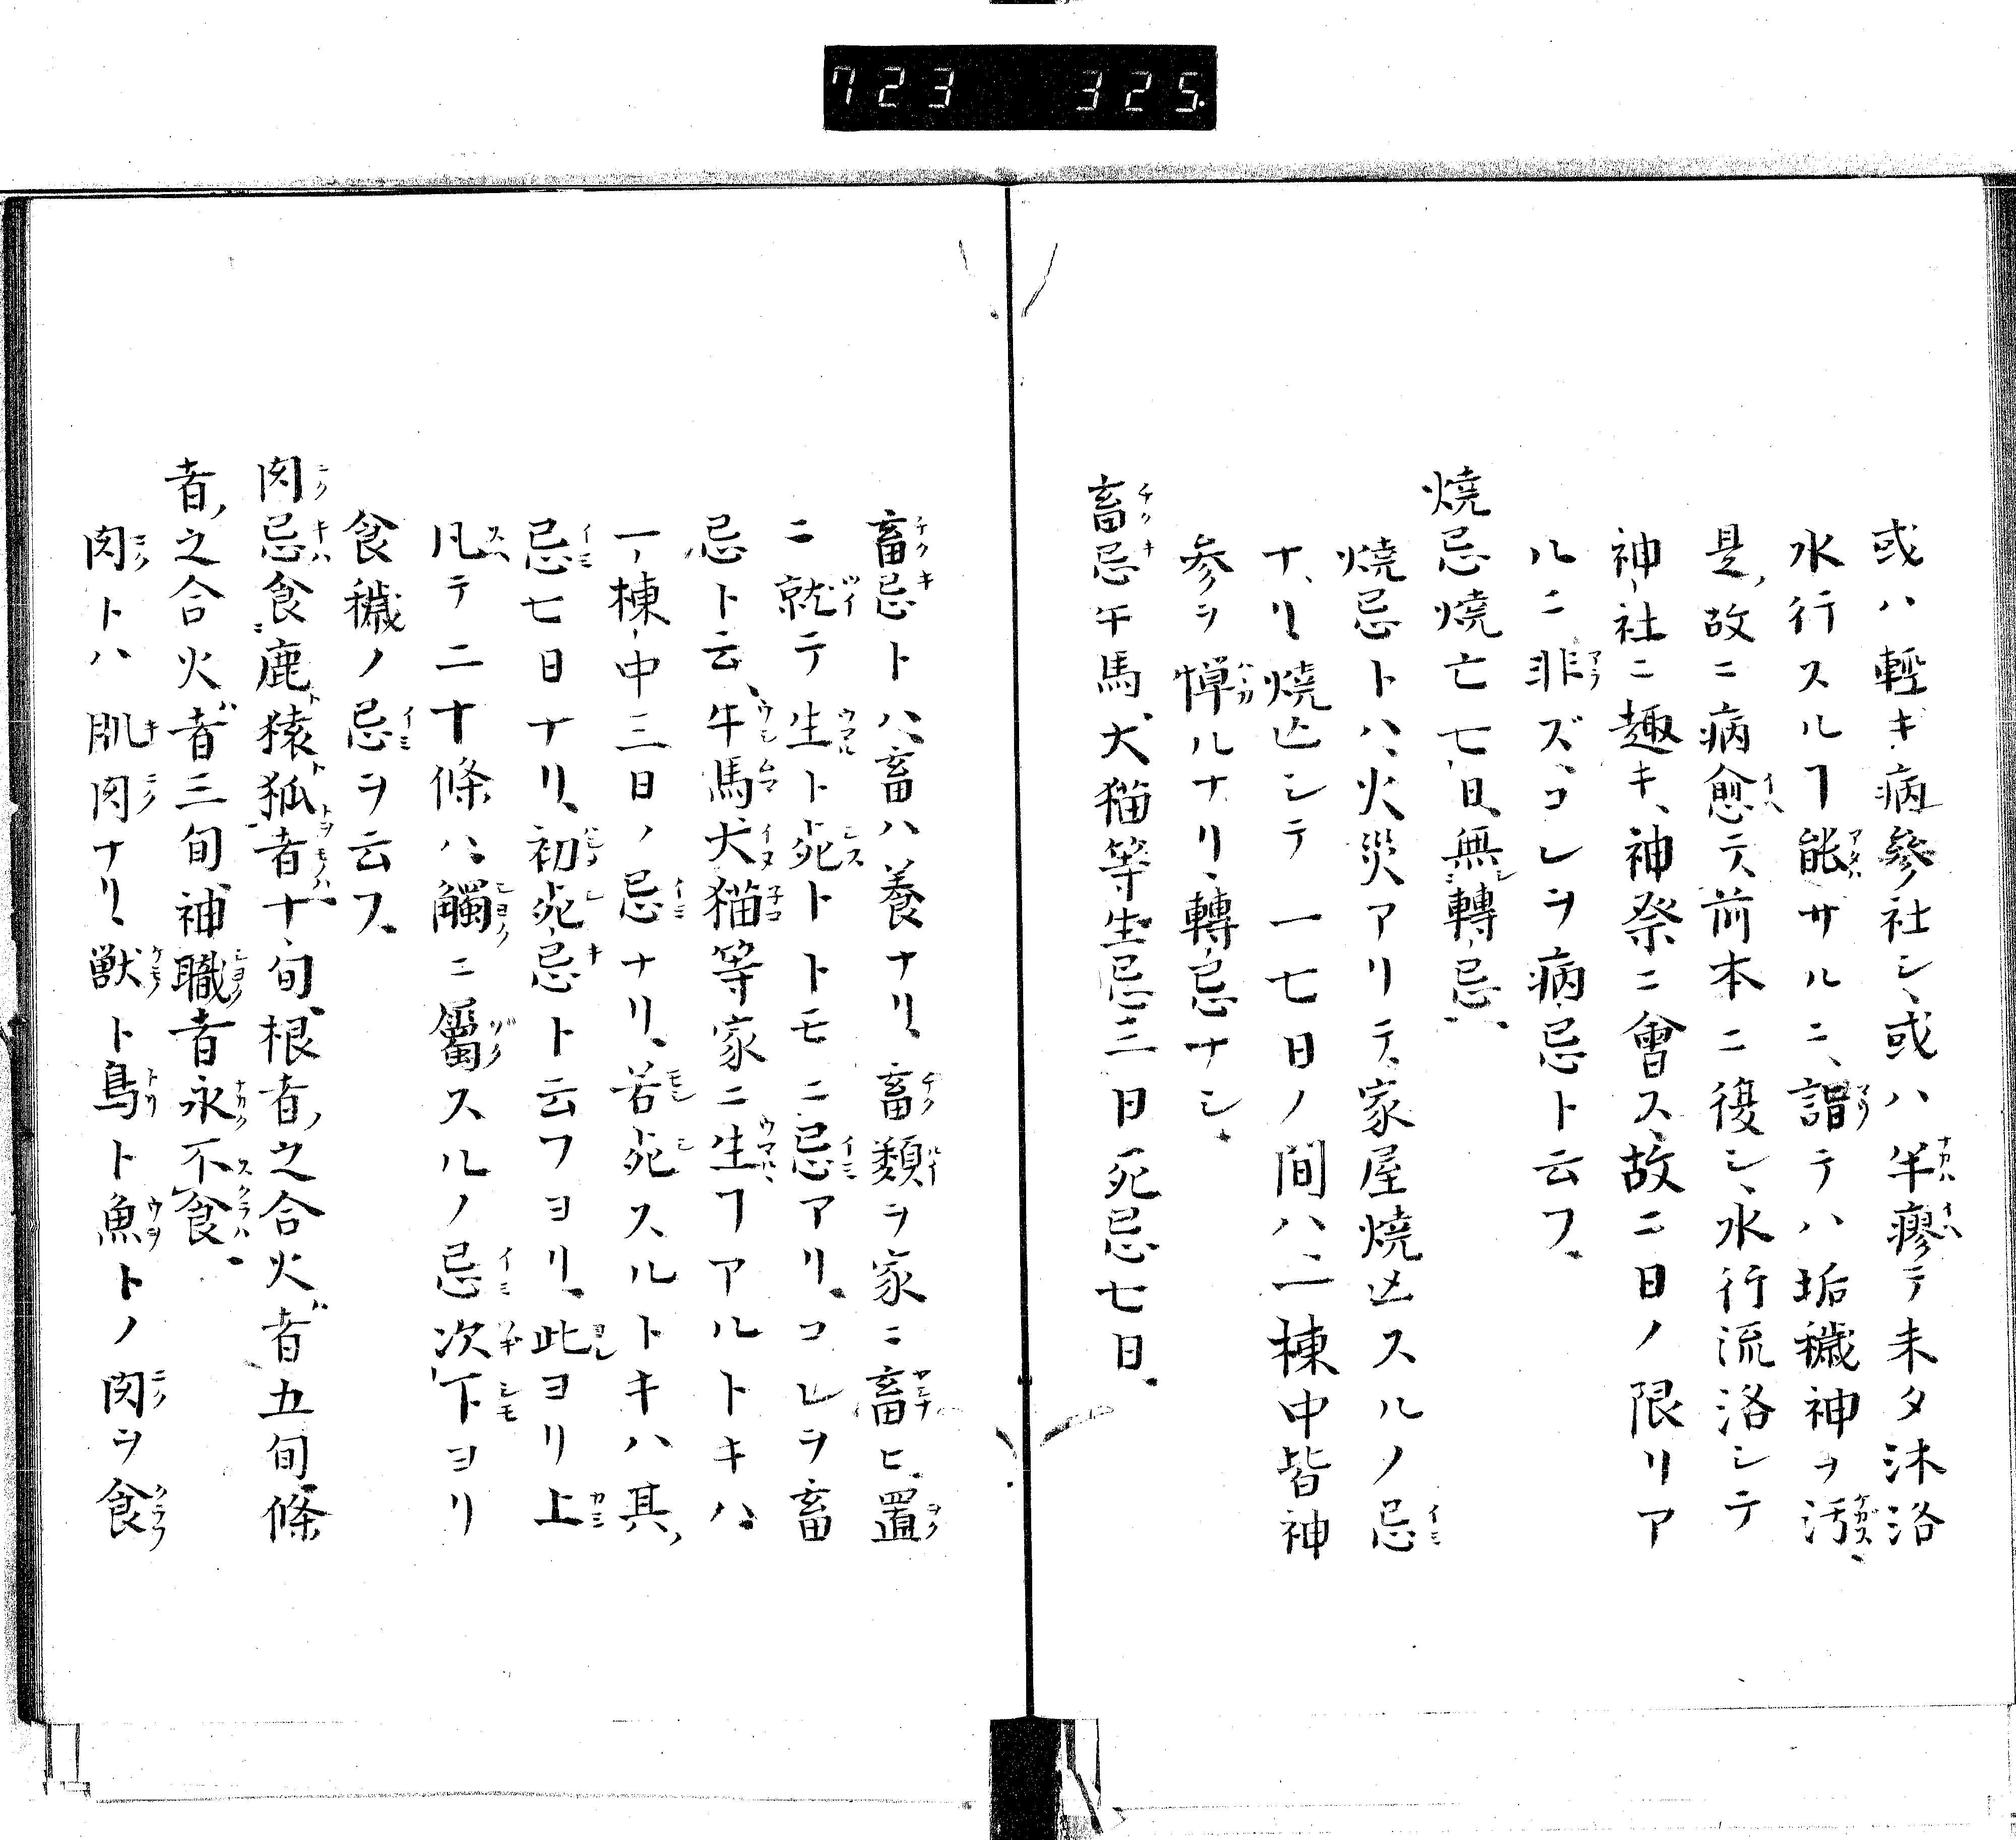 723 325
或ハ輕キ病參社シ、或ハ半癒テ未タ沐浴
水行スルヿ能サルニ、詣テハ垢穢神ヲ汚、
是故ニ病愈テ前本ニ復シ、水行流浴シテ
神社ニ趣キ、神祭ニ會ス、故ニ日ノ限リア
ルニ非ズ、コレヲ病忌ト云フ、
燒忌燒亡七日、無轉忌、
燒忌トハ、火災アリテ、家屋燒亡スルノ忌
ナリ、燒亡シテ一七日ノ間ハ一棟中皆神
参ヲ憚ルナリ、轉忌ナシ、
畜忌牛馬犬猫等生忌三日死忌七日、
畜忌トハ、畜ハ養ナリ、畜類ヲ家ニ畜ヒ置
ニ就テ生ト死トトモニ忌アリ、コレヲ畜
忌ト云、牛馬犬猫等家ニ生ヿアルトキハ、
一棟中三日ノ忌ナリ、若死スルトキハ其
忌七日ナリ、初死忌ト云フヨリ、此ヨリ上
凡テ二十條ハ、觸ニ屬スルノ忌次下ヨリ
食穢ノ忌ヲ云フ、
肉忌食鹿猿狐者十旬、根者之合火者五旬、條
者之合火者三旬、神職者永不食、
肉トハ肌肉ナリ、獣ト鳥ト魚トノ肉ヲ食